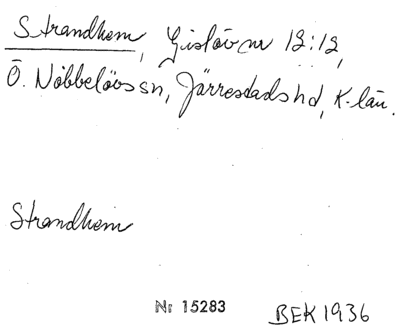 Strandhem, Gislöv nr 12:12,
Ö. Nöbbelövs sn, Järrestads hd, K-län.
Strandhem
Nr 15283
BEK 1936